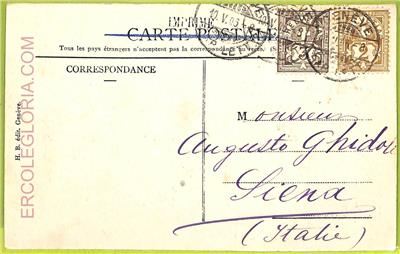 IMPRIMÉ
CARTE POSTALE
Tous les pays étrangers n'acceptent pas la correspondance au verso.
CORRESPONDANCE
GENÈVE
10.V.05
H. B. édit. Genève.
ERCOLEGLORIA.COM
Monsieur
Augusto Ghidoli
Siena
(Italie)